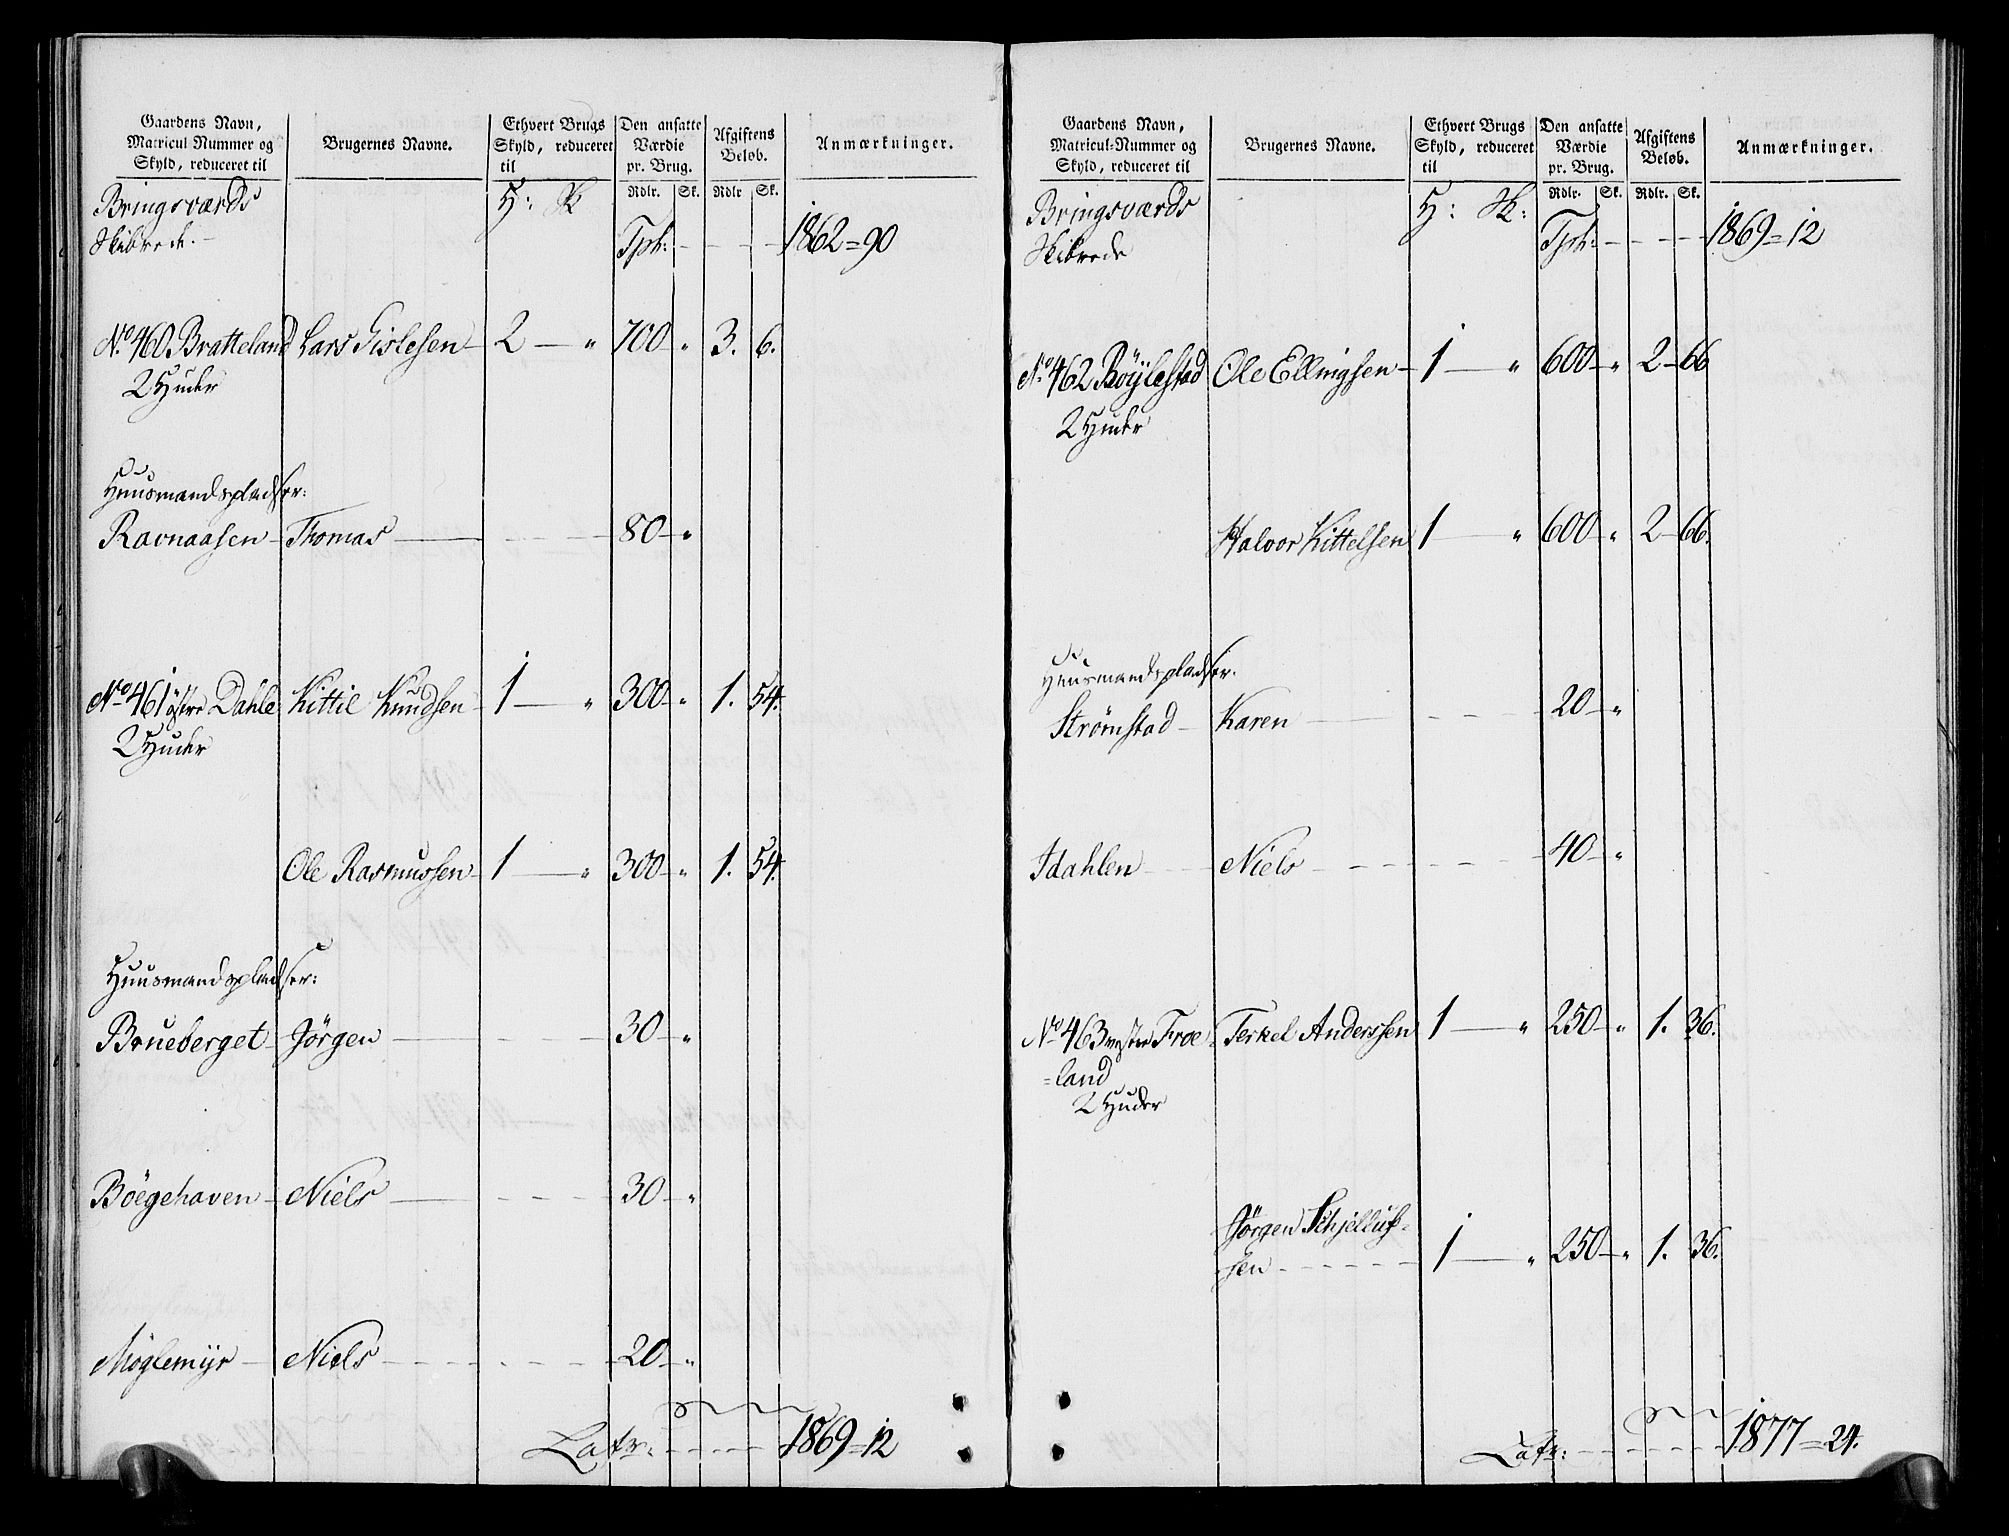 Gaardens Navn,
Matricul Nummer og
Skyld, reduceret til
Brugernes Navne.
Ethvert Brugs
Skyld, reduceret
til
Den ansatte
Værdie
pr. Brug.
Afgiftens
Beløb.
Anmærkninger.
Rdlr. Sk. Rdlr Sk.
Bringsværds
Skibrede.
H: Sk
Tpt: 1862=90
No. 460 Bratteland Lars Gislesen 2 — " 700 " 3. 6.
2 Huder
Huusmandspladser:
Ravnaasen Thomas 80 "
No 461 östre Dahle Kittil Knudsen 1 — " 300 " 1. 54.
2 Huder
Ole Rasmussen 1 — " 300 " 1. 54.
Huusmandspladser:
Brueberget Jörgen 30 "
Böegehaven Niels 30 "
Möglemÿr Niels 20 "
Latr: 1869=12
Gaardens Navn,
Matricul-Nummer og
Skyld, reduceret til
Brugernes Navne.
Ethvert Brugs
Skyld, reduceret
til
Den ansatte
Værdie
pr. Brug.
Afgiftens
Beløb.
Anmærkninger.
Rdlr. Sk. Rdlr. Sk.
Bringsværds
Skibrede
H: Sk:
Tpt: 1869=12
No. 462 Böÿlestad Ole Ellingsen 1 — " 600 " 2 66
2 Huder
Halvor Kittelsen 1 — " 600 " 2 66.
Huusmandspladser.
Strømstad Karen 20 "
Idahlen Niels 40 "
No 463 vestre Froe Terkel Anderssen 1 — " 250 " 1. 36.
=land
2 Huder
Jörgen Schjelluf=
sen 1 — " 250 " 1. 36.
Latr: 1877=24.